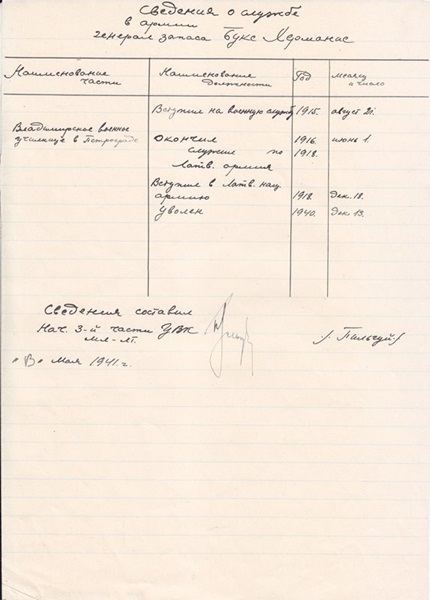 Сведения о службе
в армии
генерал запаса Букс Херманис
Наименование части
Наименование должности
Год
месяц и число
Вступил на военную службу 1915. август 21.
Владимирское военное
училище в Петрограде
Окончил 1916. июнь 1.
служил по 1918.
Латв. армия
Вступил в Латв. нац.
армию 1918. дек. 18.
Уволен 1940. дек. 13.
Сведения составил
Нач. 3-й части УВК
мл-лт.
мая 1941 г.